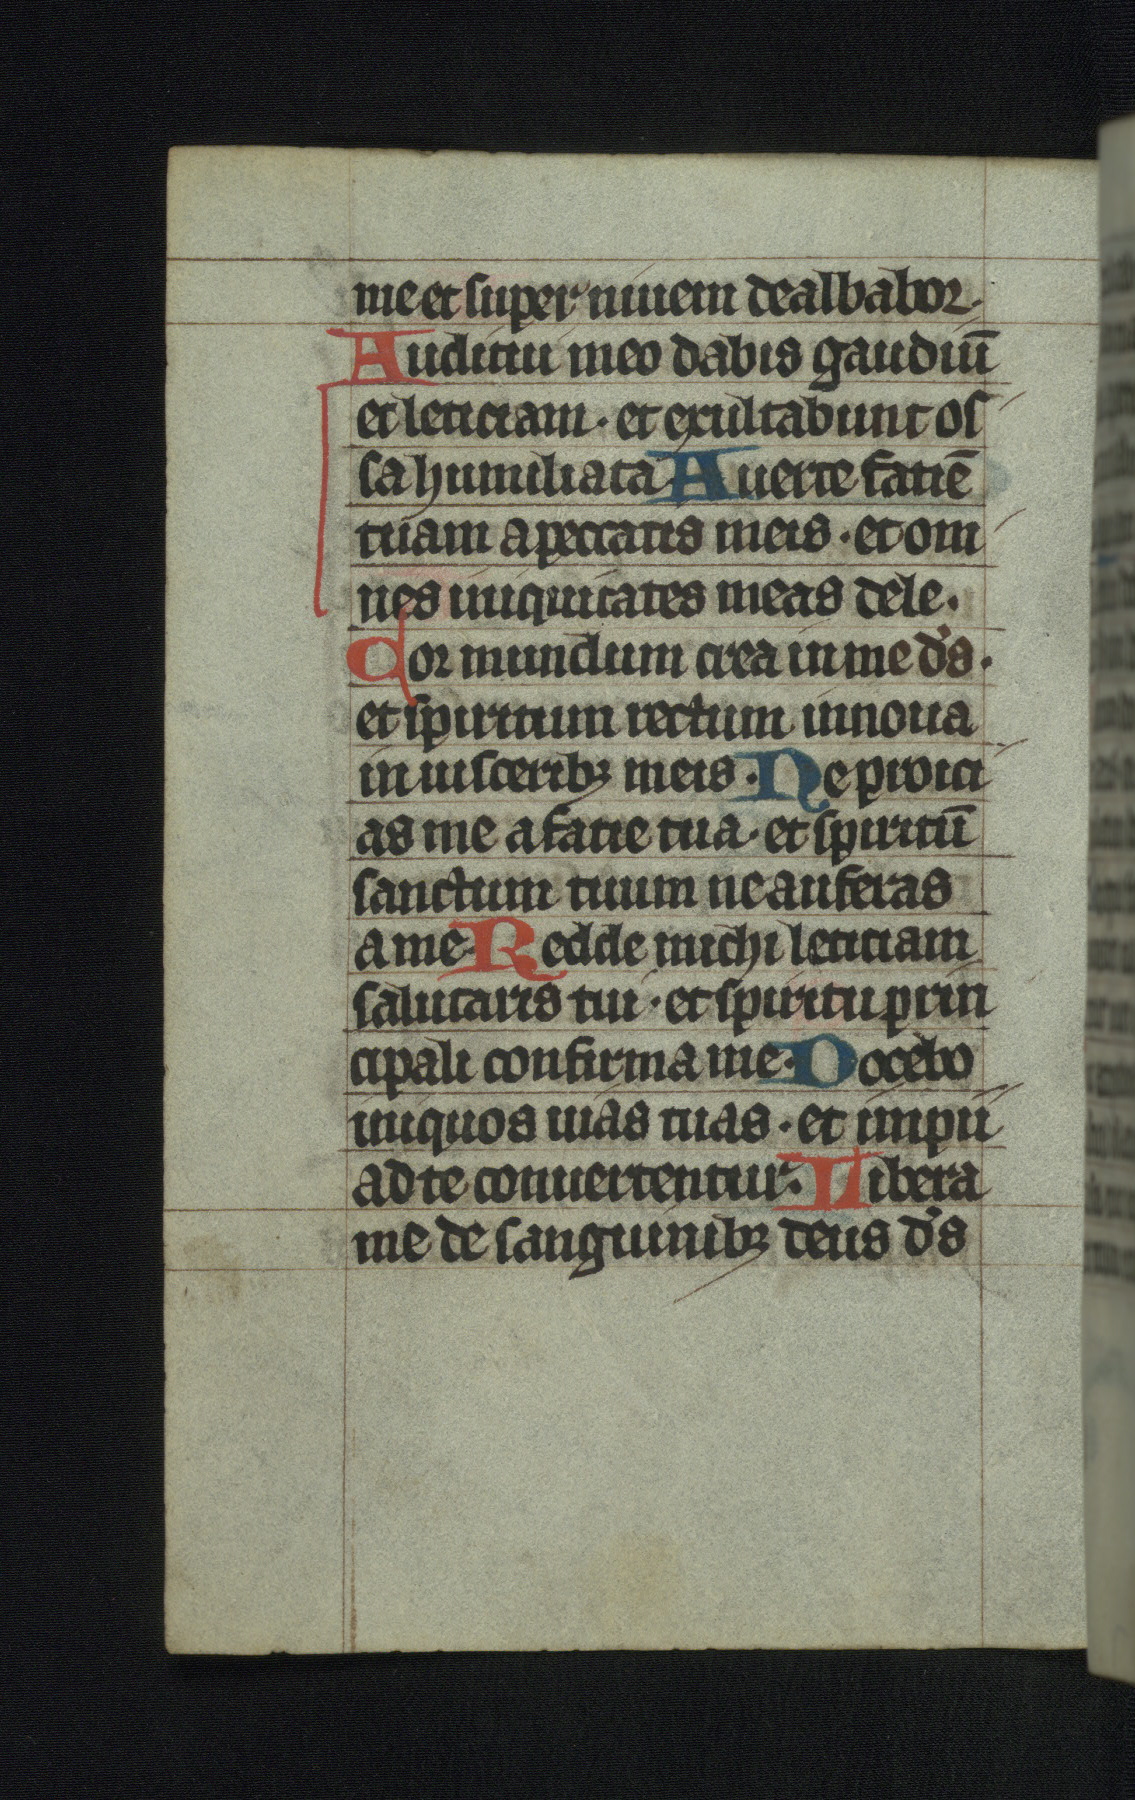 me et super niuem dealbabor.
Auditui meo dabis gaudiū
et leticiam · et exultabunt os
sa humiliata. Auerte faciē
tuam a peccatis meis · et om
nes iniquitates meas dele.
Cor mundum crea in me ds̄.
et spiritum rectum innoua
in uisceribꝫ meis. Ne proici
as me a facie tua · et spiritū
sanctum tuum ne auferas
a me. Redde michi leticiam
salutaris tui · et spiritu prin
cipali confirma me. Docebo
iniquos uias tuas · et impii
ad te conuertentur. Libera
me de sanguinibꝫ deus ds̄